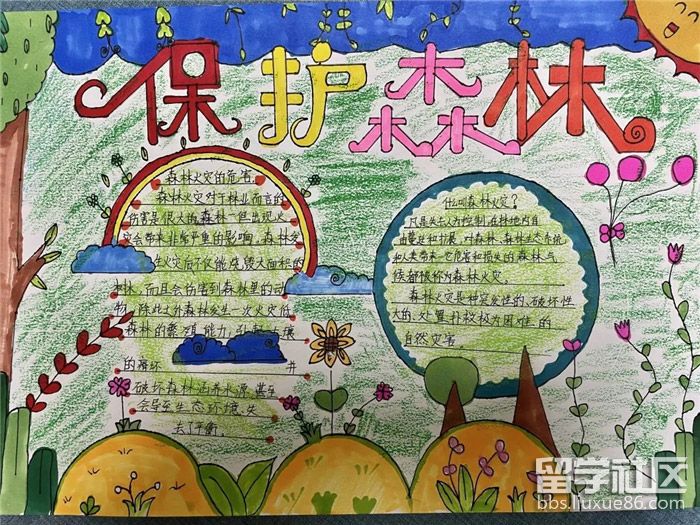 保护森林
森林火灾的危害
森林火灾对于林业而言的
伤害是很大的森林一但出现火
灾会带来非常严重的影响,森林发
生火灾后不仅能烧毁大面积的
林,而且会伤害到森林里的动
物,除此之外森林发生一次火灾低
森林的繁殖能力,引起土壤
的瘠薄
破坏森林涵养水源,甚至
会导至生态环境失
去平衡。
什么叫森林火灾?
凡是失去人为控制,在林地内自
由蔓延和扩展,对森林、森林生态系统
和人类带来一定危害和损失的森林
候都被称为森林火灾。
森林火灾是种突发性的、破坏性
大的,处置扑救较为困难的
自然灾害
留学社区
bbs.liuxue86.com